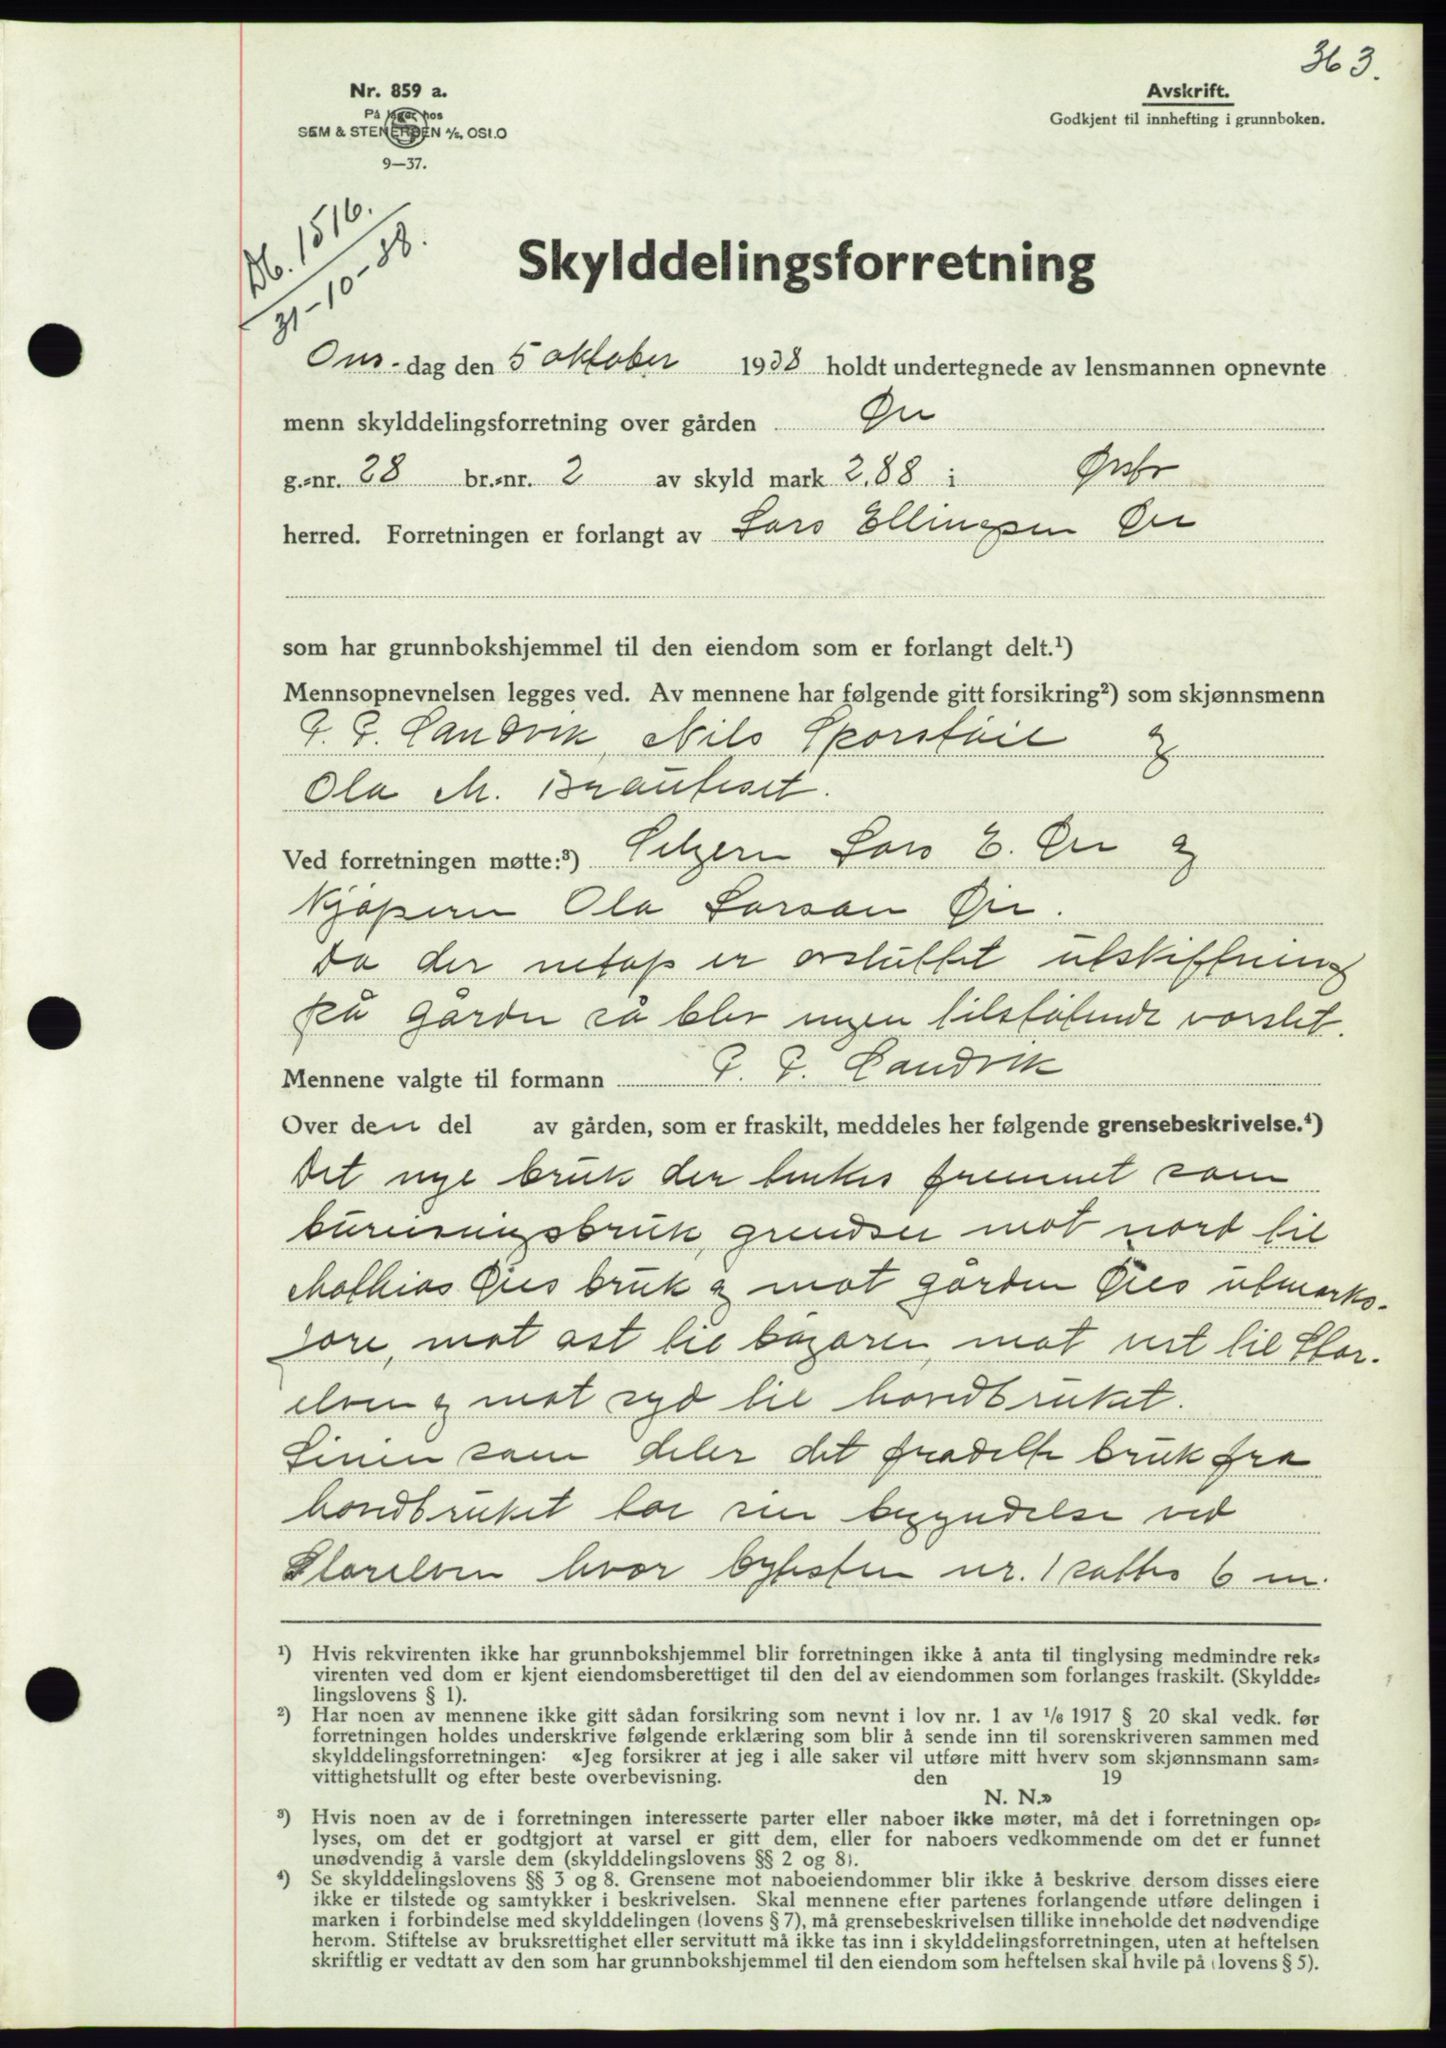 363.
Nr. 859 a.
På lager hos
SEM & STENERSEN A/S, OSLO
9—37.
Avskrift.
Godkjent til innhefting i grunnboken.
Db. 1516.
31-10-38.
Skylddelingsforretning
Ons-dag den 5 oktober 1938 holdt undertegnede av lensmannen opnevnte
menn skylddelingsforretning over gården Øie
g.-nr. 28 br.-nr. 2 av skyld mark 2,88 i
herred. Forretningen er forlangt av Lars Ellingsen Øie
som har grunnbokshjemmel til den eiendom som er forlangt delt.¹)
Mennsopnevnelsen legges ved. Av mennene har følgende gitt forsikring²) som skjønnsmenn
P. P. Landvik, Nils Sporstøil og
Ola M. Brauteset.
Ved forretningen møtte:³) Selgeren Lars E. Øie og
Kjøperen Ola Larsen Øie.
Da der netop er avsluttet utskiftning
på garden så blev ingen tilstøtende varslet.
Mennene valgte til formann P. P. Landvik
Over den del av gården, som er fraskilt, meddeles her følgende grensebeskrivelse.⁴)
Det nye bruk der tenkes fremmet som
bureisningsbruk, grendser mot nord til
Mathias Øies bruk og mot garden Øies utmarks-
jore, mot øst til bøgaren, mot vest til Stor-
elven og mot syd til hovedbruket.
Linien som deler det fradelte bruk fra
hovedbruket tar sin begyndelse ved
Storelven hvor bytesten nr. 1 sattes 6 m.
¹) Hvis rekvirenten ikke har grunnbokshjemmel blir forretningen ikke å anta til tinglysing medmindre rek-
virenten ved dom er kjent eiendomsberettiget til den del av eiendommen som forlanges fraskilt. (Skyldde-
lingslovens § 1).
²) Har noen av mennene ikke gitt sådan forsikring som nevnt i lov nr. 1 av 1/6 1917 § 20 skal vedk. før
forretningen holdes underskrive følgende erklæring som blir å sende inn til sorenskriveren sammen med
skylddelingsforretningen: «Jeg forsikrer at jeg i alle saker vil utføre mitt hverv som skjønnsmann sam-
vittighetsfullt og efter beste overbevisning. den 19
N. N.»
³) Hvis noen av de i forretningen interesserte parter eller naboer ikke møter, må det i forretningen op-
lyses, om det er godtgjort at varsel er gitt dem, eller for naboers vedkommende om det er funnet
unødvendig å varsle dem (skylddelingslovens §§ 2 og 8).
⁴) Se skylddelingslovens §§ 3 og 8. Grensene mot naboeiendommer blir ikke å beskrive dersom disses eiere
ikke er tilstede og samtykker i beskrivelsen. Skal mennene efter partenes forlangende utføre delingen i
marken i forbindelse med skylddelingen (lovens § 7), må grensebeskrivelsen tillike inneholde det nødvendige
herom. Stiftelse av bruksrettighet eller servitutt må ikke tas inn i skylddelingsforretningen, uten at heftelsen
skriftlig er vedtatt av den som har grunnbokshjemmel til den eiendom som heftelsen skal hvile på (lovens § 5).